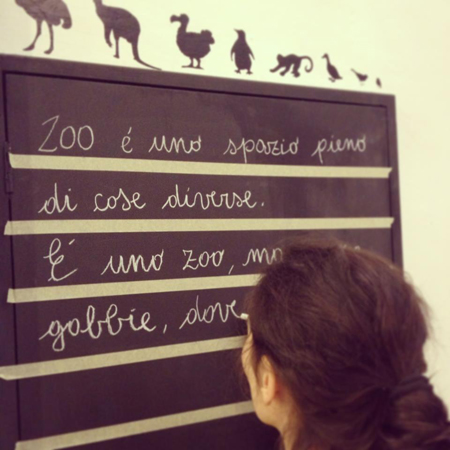 Zoo é uno spazio pieno
di cose diverse.
É uno zoo,
gabbie, dove